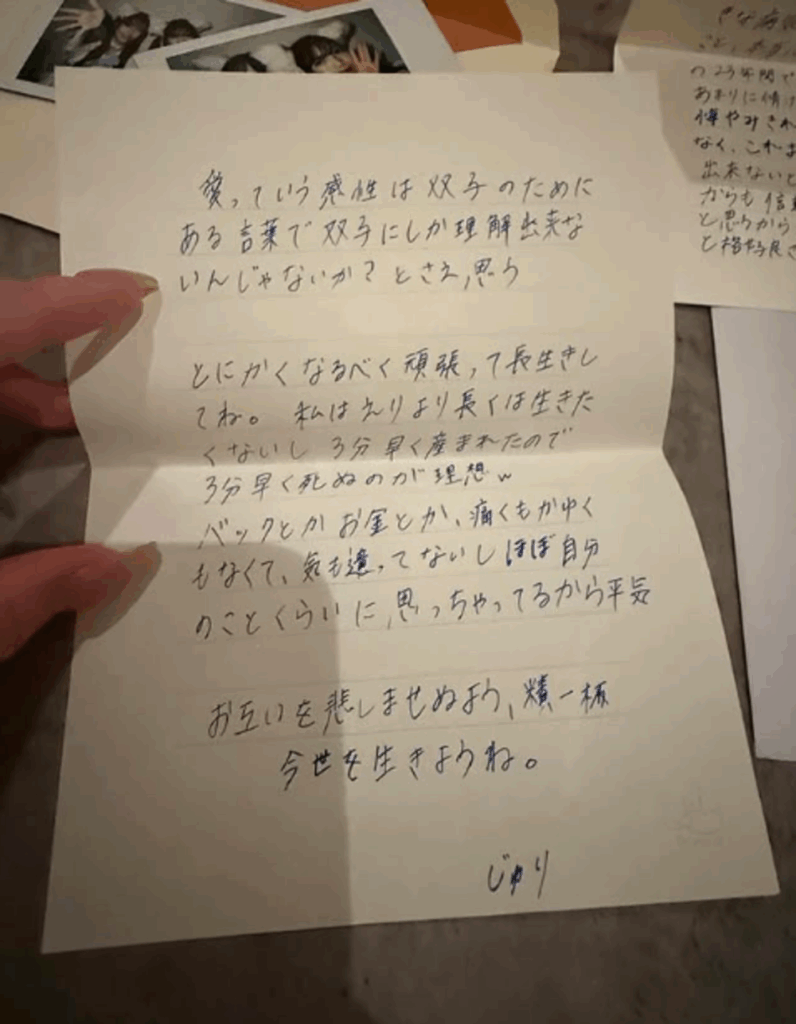 愛っていう感性は双子のために
ある言葉で双子にしか理解出来な
いんじゃないか？とさえ思う
とにかくなるべく頑張って長生きし
てね。私はえりより長くは生きた
くないし 3分早く産まれたので
3分早く死ぬのが理想w
バックとかお金とか、痛くもかゆく
もなくて、気も遣ってないしほぼ自分
のことくらいに思っちゃってるから平気
お互いを悲しませぬよう、精一杯
今世を生きようね。
じゅり
の23年間で
あまりに情け
悔やみきれ
なく、これ
出来ないと
からも信
と思うから
と格好良さ